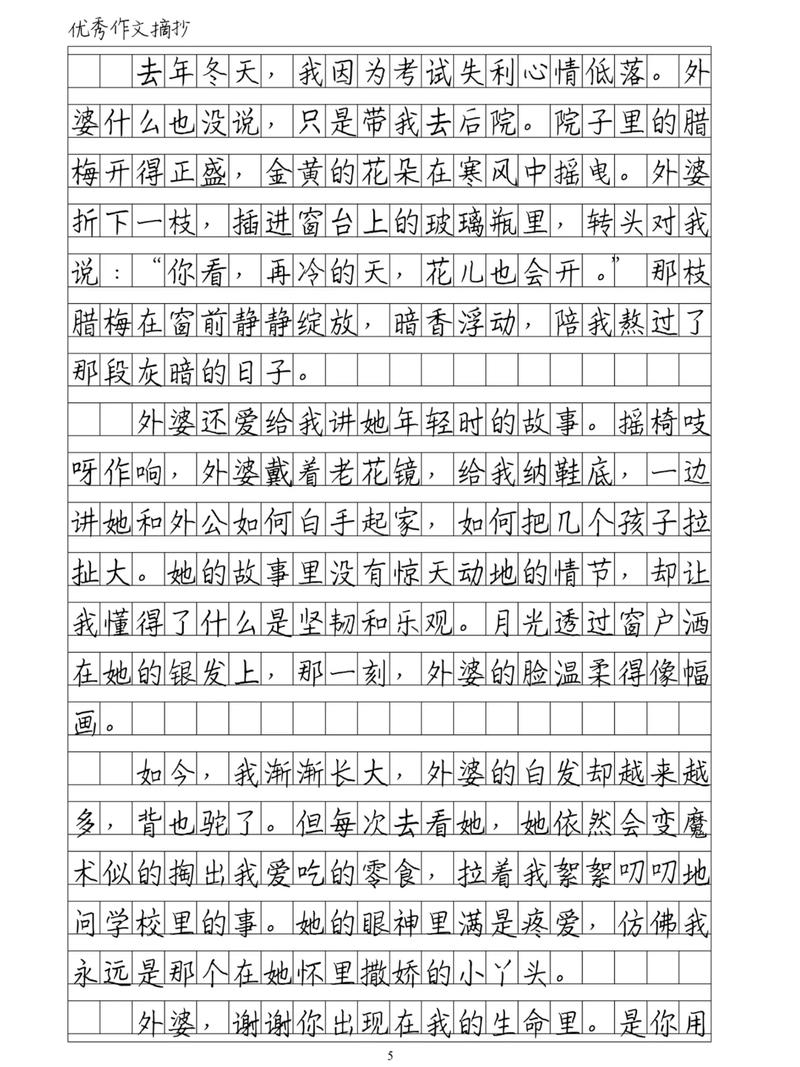 优秀作文摘抄
去年冬天，我因为考试失利心情低落。外
婆什么也没说，只是带我去后院。院子里的腊
梅开得正盛，金黄的花朵在寒风中摇曳。外婆
折下一枝，插进窗台上的玻璃瓶里，转头对我
说：“你看，再冷的天，花儿也会开。”那枝
腊梅在窗前静静绽放，暗香浮动，陪我熬过了
那段灰暗的日子。
外婆还爱给我讲她年轻时的故事。摇椅吱
呀作响，外婆戴着老花镜，给我纳鞋底，一边
讲她和外公如何白手起家，如何把几个孩子拉
扯大。她的故事里没有惊天动地的情节，却让
我懂得了什么是坚韧和乐观。月光透过窗户洒
在她的银发上，那一刻，外婆的脸温柔得像幅
画。
如今，我渐渐长大，外婆的白发却越来越
多，背也驼了。但每次去看她，她依然会变魔
术似的掏出我爱吃的零食，拉着我絮絮叨叨地
问学校里的事。她的眼神里满是疼爱，仿佛我
永远是那个在她怀里撒娇的小丫头。
外婆，谢谢你出现在我的生命里。是你用
5